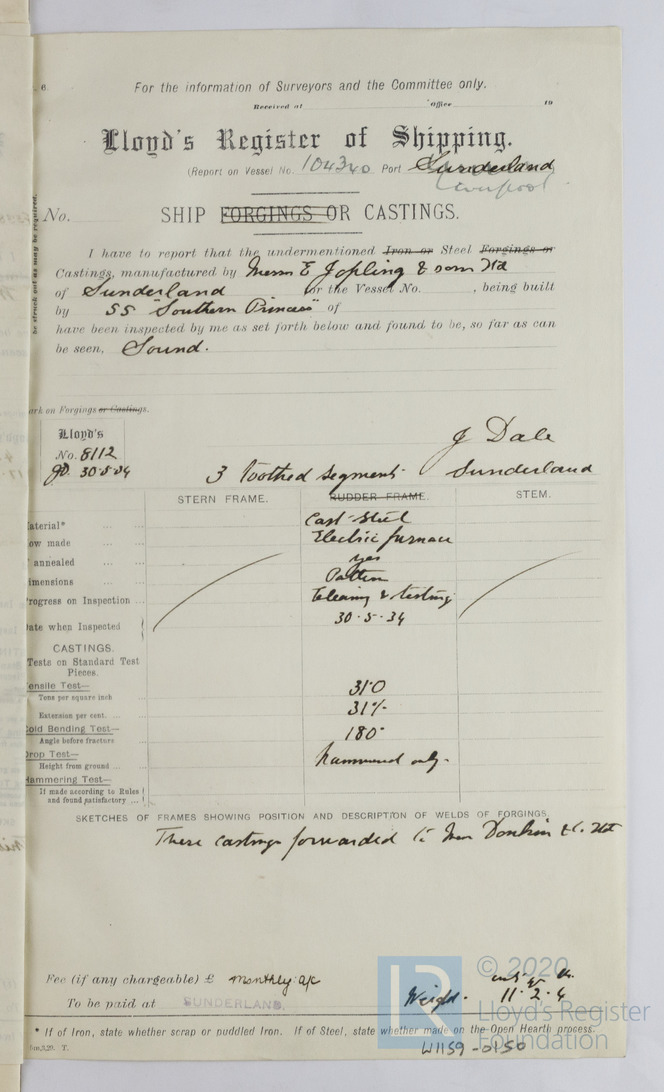 6.
For the information of Surveyors and the Committee only.
Received at Office 19
Lloyd's Register of Shipping.
(Report on Vessel No. 104340 Port Sunderland
Liverpool
No.
SHIP FORGINGS OR CASTINGS.
I have to report that the undermentioned Iron or Steel Forgings or
Castings, manufactured by Messrs E Jopling & Sons Ltd
of Sunderland for the Vessel No. , being built
by SS "Southern Princess" of
have been inspected by me as set forth below and found to be, so far as can
be seen, Sound.
be struck out as may be required.
ark on Forgings or Castings.
Lloyd's
No. 8112
JD. 30·5·34
J Dale
3 Toothed Segments Sunderland
STERN FRAME. RUDDER FRAME. STEM.
aterial* ... ... Cast Steel
ow made ... ... Electric furnace
annealed ... ... yes
imensions ... ... Pattern
rogress on Inspection ... Cleaning & testing
ate when Inspected 30·5·34
CASTINGS.
Tests on Standard Test
Pieces.
ensile Test—
Tons per square inch ... 31·0
Extension per cent. ... ... 31%
old Bending Test—
Angle before fracture 180°
rop Test—
Height from ground ... ... hammered only.
ammering Test—
If made according to Rules
and found satisfactory ...
SKETCHES OF FRAMES SHOWING POSITION AND DESCRIPTION OF WELDS OF FORGINGS.
These castings forwarded to Messrs Donkin & Co. Ltd
Fee (if any chargeable) £ monthly a/c
cwts qr lbs.
To be paid at SUNDERLAND. Weight. 11·2·4
* If of Iron, state whether scrap or puddled Iron. If of Steel, state whether made on the Open Hearth process.
5m,3,29. T.
W1159-0150
© 2020
Lloyd's Register
Foundation